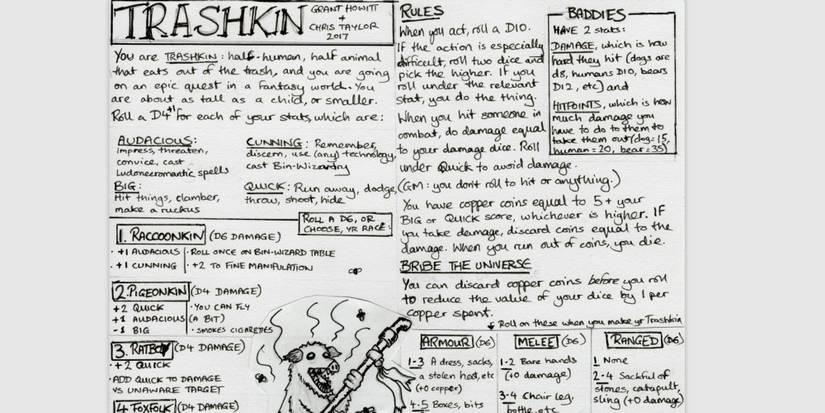 TRASHKIN
GRANT HOWITT
+
CHRIS TAYLOR
2017
You are TRASHKIN: half-human, half animal
that eats out of the trash, and you are going
on an epic quest in a fantasy world. You
are about as tall as a child, or smaller.
Roll a D4+1 for each of your stats, which are:
AUDACIOUS:
impress, threaten,
convice, cast
Ludonecromantic spells
BIG:
Hit things, clamber,
make a ruckus
CUNNING: Remember,
discern, use (any) technology,
cast Bin-Wizardry
QUICK: Run away, dodge,
throw, shoot, hide
ROLL A D6, OR
CHOOSE, YR RACE:
1. RACCOONKIN (D6 DAMAGE)
· +1 AUDACIOUS
· +1 CUNNING
· ROLL ONCE ON BIN-WIZARD TABLE
· +2 TO FINE MANIPULATION
2. PIGEONKIN (D4 DAMAGE)
+2 QUICK
+1 AUDACIOUS
-1 BIG
· YOU CAN FLY
(A BIT)
· SMOKES CIGARETTES
3. RATBOY (D4 DAMAGE)
· +2 QUICK
· ADD QUICK TO DAMAGE
VS UNAWARE TARGET
4. FOXFOLK (D4 DAMAGE)
RULES
When you act, roll a D10.
If the action is especially
difficult, roll two dice and
pick the higher. If you
roll under the relevant
stat, you do the thing.
When you hit someone in
combat, do damage equal
to your damage dice. Roll
under Quick to avoid damage.
(GM: you don't roll to hit or anything.)
You have copper coins equal to 5 + your
BIG or QUICK score, whichever is higher. IF
you take damage, discard coins equal to the
damage. When you run out of coins, you die.
BRIBE THE UNIVERSE
You can discard copper coins before you roll
to reduce the value of your dice by 1 per
copper spent.
BADDIES
HAVE 2 stats:
DAMAGE, which is how
hard they hit (dogs are
d8, humans D10, bears
D12, etc) and
HITPOINTS, which is how
much damage you
have to do to them to
take them out (dog=15,
human=20, bear=35)
Roll on these when you make yr Trashkin
ARMOUR (D6)
1-3 A dress, sacks,
a stolen hat, etc
(+0 copper)
4-5 Boxes, bits
MELEE (D6)
1-2 Bare hands
(+0 damage)
3-4 Chair leg,
bottle, etc
RANGED (D6)
1 None
2-4 Sackful of
stones, catapult,
sling (+0 damage)